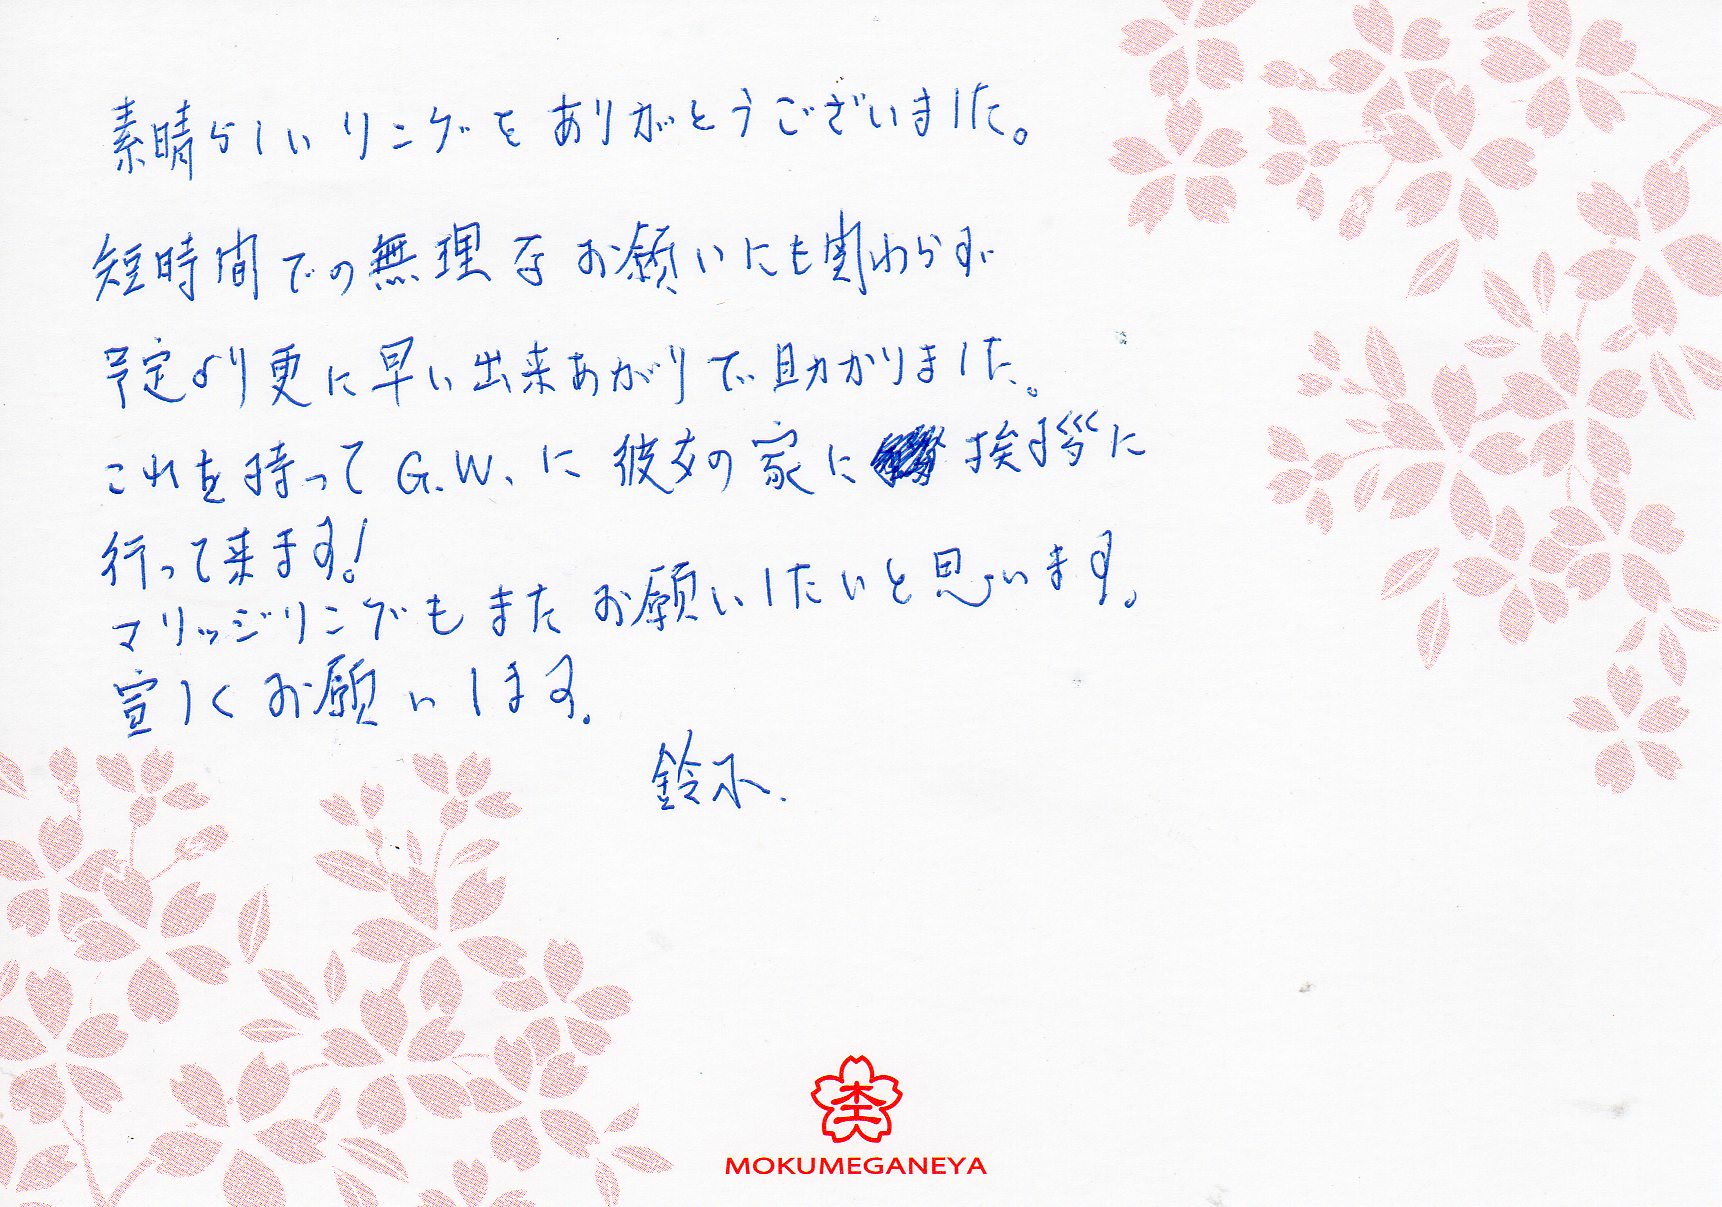 素晴らしいリングをありがとうございました。
短時間での無理なお願いにも関わらず
予定より更に早い出来あがりで助かりました。
これを持ってG.W.に彼女の家に挨拶に
行って来ます!
マリッジリングもまたお願いしたいと思います。
宜しくお願いします。
鈴木.
MOKUMEGANEYA